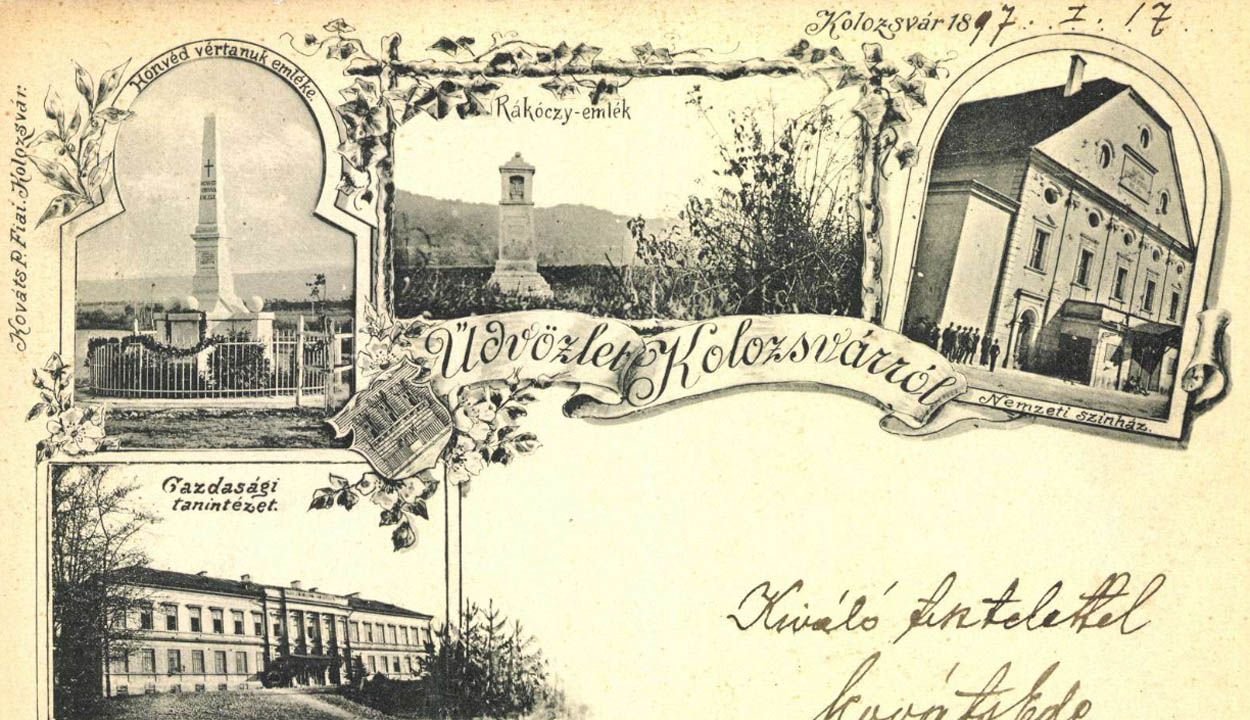 Kolozsvár 1897. I. 17.
Honvéd vértanuk emléke.
Rákóczy-emlék
Kováts P. Fiai. Kolozsvár.
Üdvözlet Kolozsvárról
Nemzeti szinház.
Gazdasági
tanintézet.
Kiváló tisztelettel